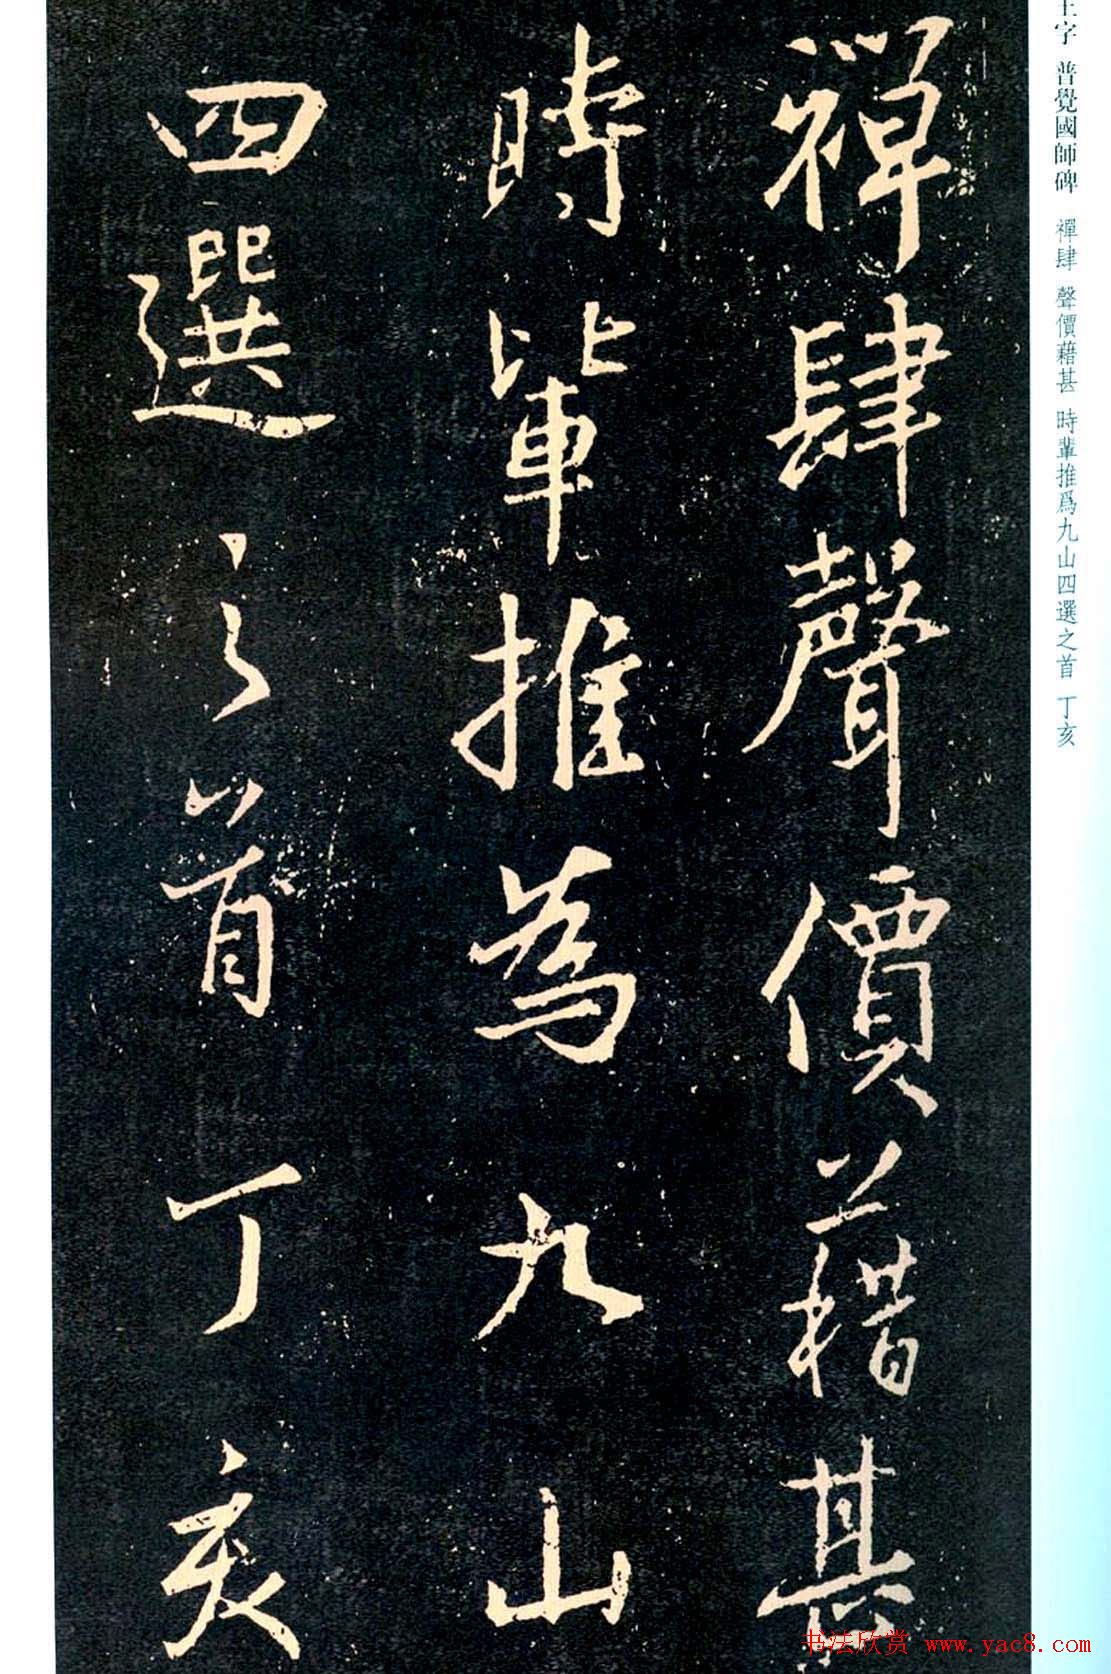 禪肆聲價藉甚
時輩推為九山
四選之首丁亥
王字 普覺國師碑 禪肆 聲價藉甚 時輩推爲九山四選之首 丁亥
书法欣赏 www.yac8.com